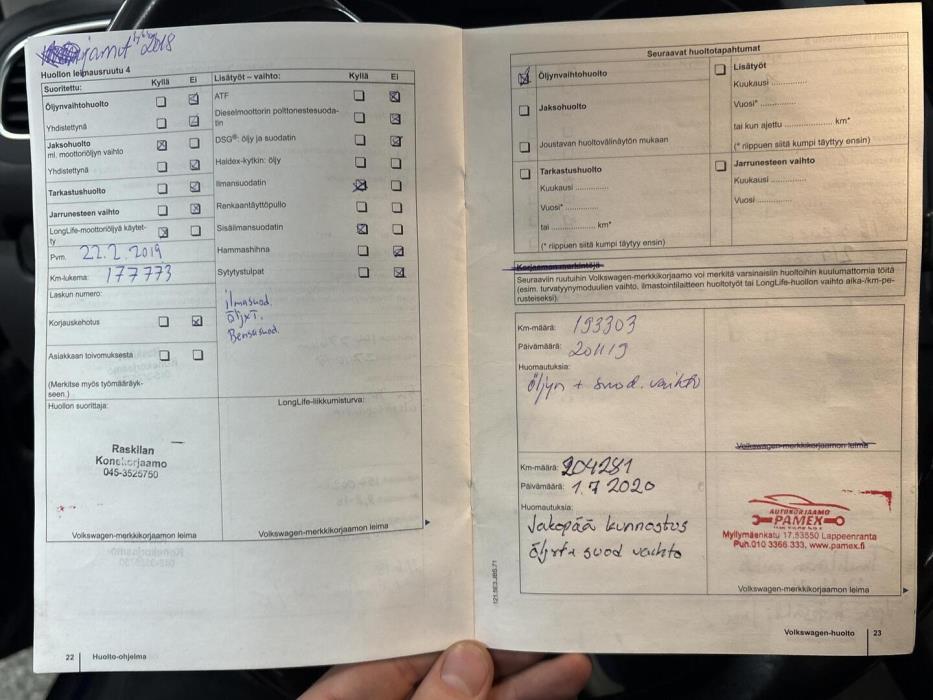 jarrut 2018
Huollon leimausruutu 4
Suoritettu: Kyllä Ei
Öljynvaihtohuolto
Yhdistettynä
Jaksohuolto
ml. moottoriöljyn vaihto
Yhdistettynä
Tarkastushuolto
Jarrunesteen vaihto
LongLife-moottoriöljyä käytet-
ty
Pvm. 22.2.2019
Km-lukema: 177773
Laskun numero:
Korjauskehotus
Asiakkaan toivomuksesta
(Merkitse myös työmääräyk-
seen.)
Huollon suorittaja:
Raskilan
Konekorjaamo
045-3525750
Volkswagen-merkkikorjaamon leima
Lisätyöt – vaihto: Kyllä Ei
ATF
Dieselmoottorin polttonestesuoda-
tin
DSG®: öljy ja suodatin
Haldex-kytkin: öljy
Ilmansuodatin
Renkaantäyttöpullo
Sisäilmansuodatin
Hammashihna
Sytytystulpat
ilmasuod.
öljyt.
Bensasuod.
LongLife-liikkumisturva:
Volkswagen-merkkikorjaamon leima
22 Huolto-ohjelma
Seuraavat huoltotapahtumat
Öljynvaihtohuolto
Jaksohuolto
Joustavan huoltovälinäytön mukaan
Tarkastushuolto
Kuukausi ............
Vuosi* ............
tai ............ km*
(* riippuen siitä kumpi täytyy ensin)
Lisätyöt
Kuukausi ............
Vuosi* ............
tai kun ajettu ............ km*
(* riippuen siitä kumpi täyttyy ensin)
Jarrunesteen vaihto
Kuukausi ............
Vuosi ............
Korjaamon merkintöjä
Seuraaviin ruutuihin Volkswagen-merkkikorjaamo voi merkitä varsinaisiin huoltoihin kuulumattomia töitä
(esim. turvatyynymoduulien vaihto, ilmastointilaitteen huoltotyöt tai LongLife-huollon vaihto aika-/km-pe-
rusteiseksi).
Km-määrä: 193303
Päivämäärä: 201119
Huomautuksia:
öljyn + suod. vaihto
Volkswagen-merkkikorjaamon leima
Km-määrä: 204281
Päivämäärä: 1.7 2020
Huomautuksia:
Jakopää kunnostus
öljyt + suod vaihto
AUTOKORJAAMO
PAMEX
Myllymäenkatu 17,53550 Lappeenranta
Puh.010 3366 333, www.pamex.fi
Volkswagen-merkkikorjaamon leima
121.5E3.JBS.71
Volkswagen-huolto 23